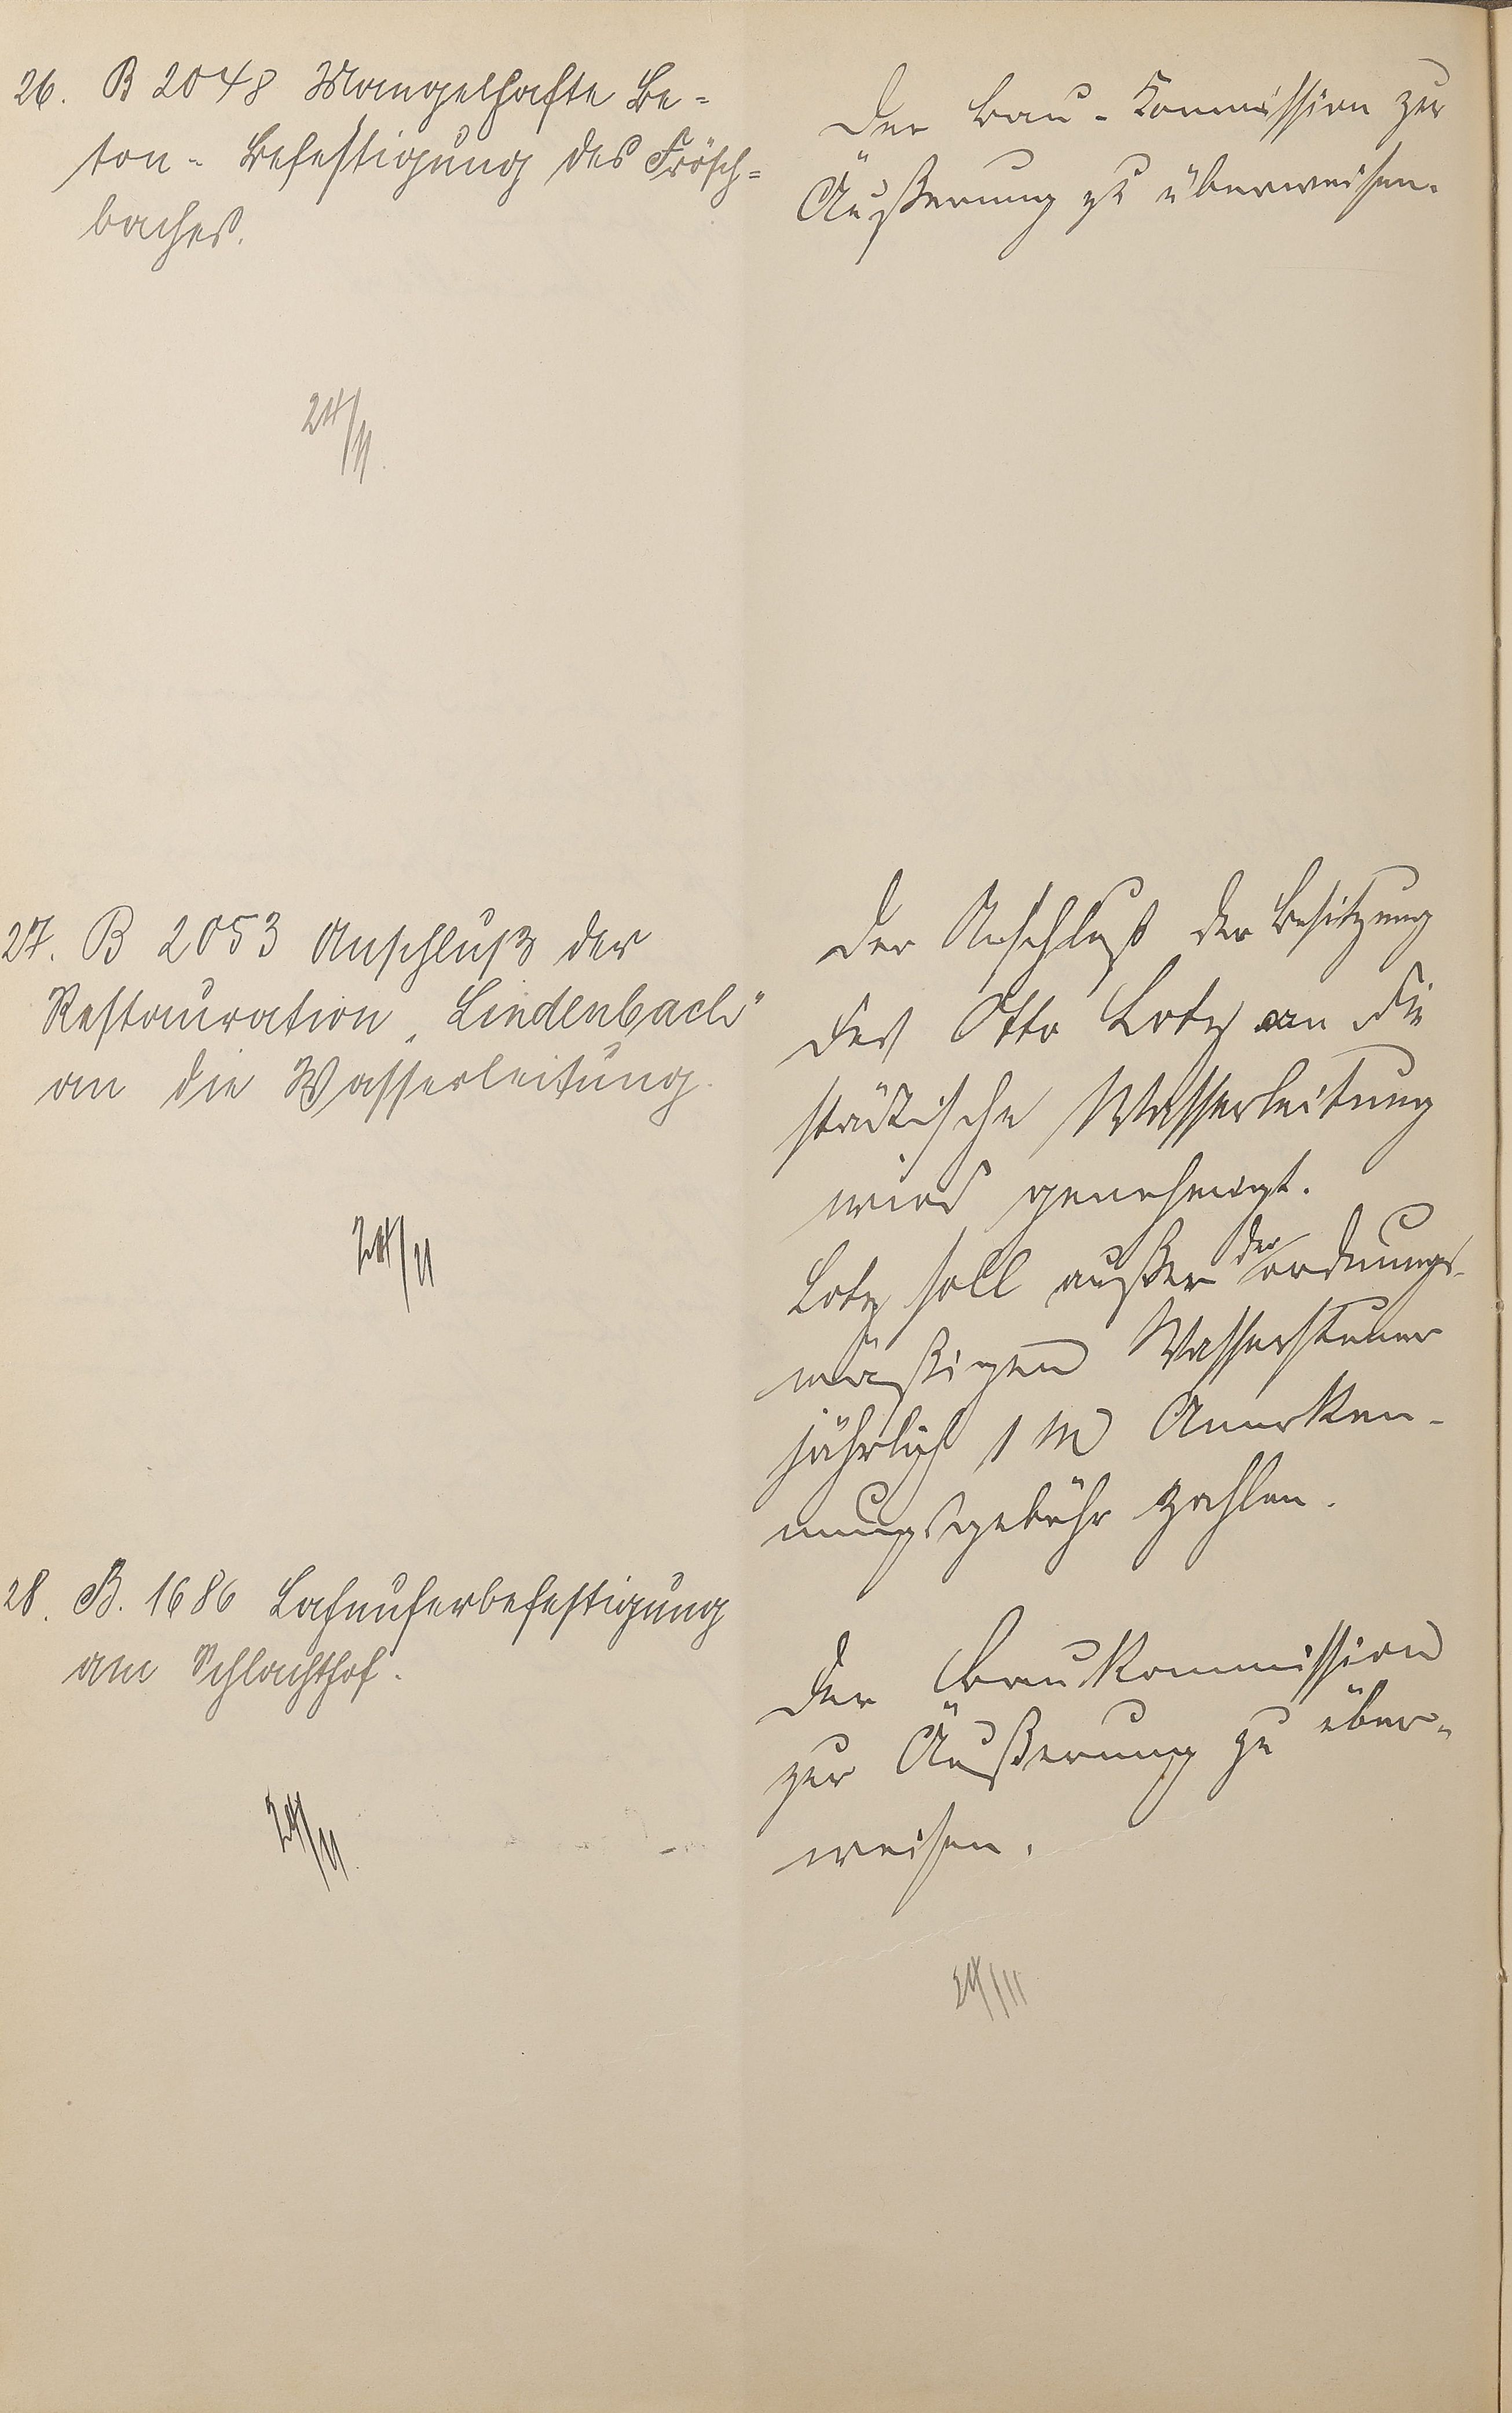 26. B 2048 Mangelhafte Be=
ton- Befestigung des Frösch=
baches.
24/11.
Der Bau-Kommission zur
Äußerung zu überweisen.
27. B 2053 Anschluß der
Restauration „Lindenbach"
an die Wasserleitung.
24/11
Der Anschluß der Besitzung
des Otto Lotz an die
städtische Wasserleitung
wird genehmigt.
Lotz soll außer der ordnungs-
mäßigen Wassersteuer
jährlich 1 M Anerken-
nungsgebühr zahlen.
28. B. 1686 Lahnuferbefestigung
am Schlachthof.
24/11.
Der Baukommission
zur Äußerung zu über-
weisen.
24/11